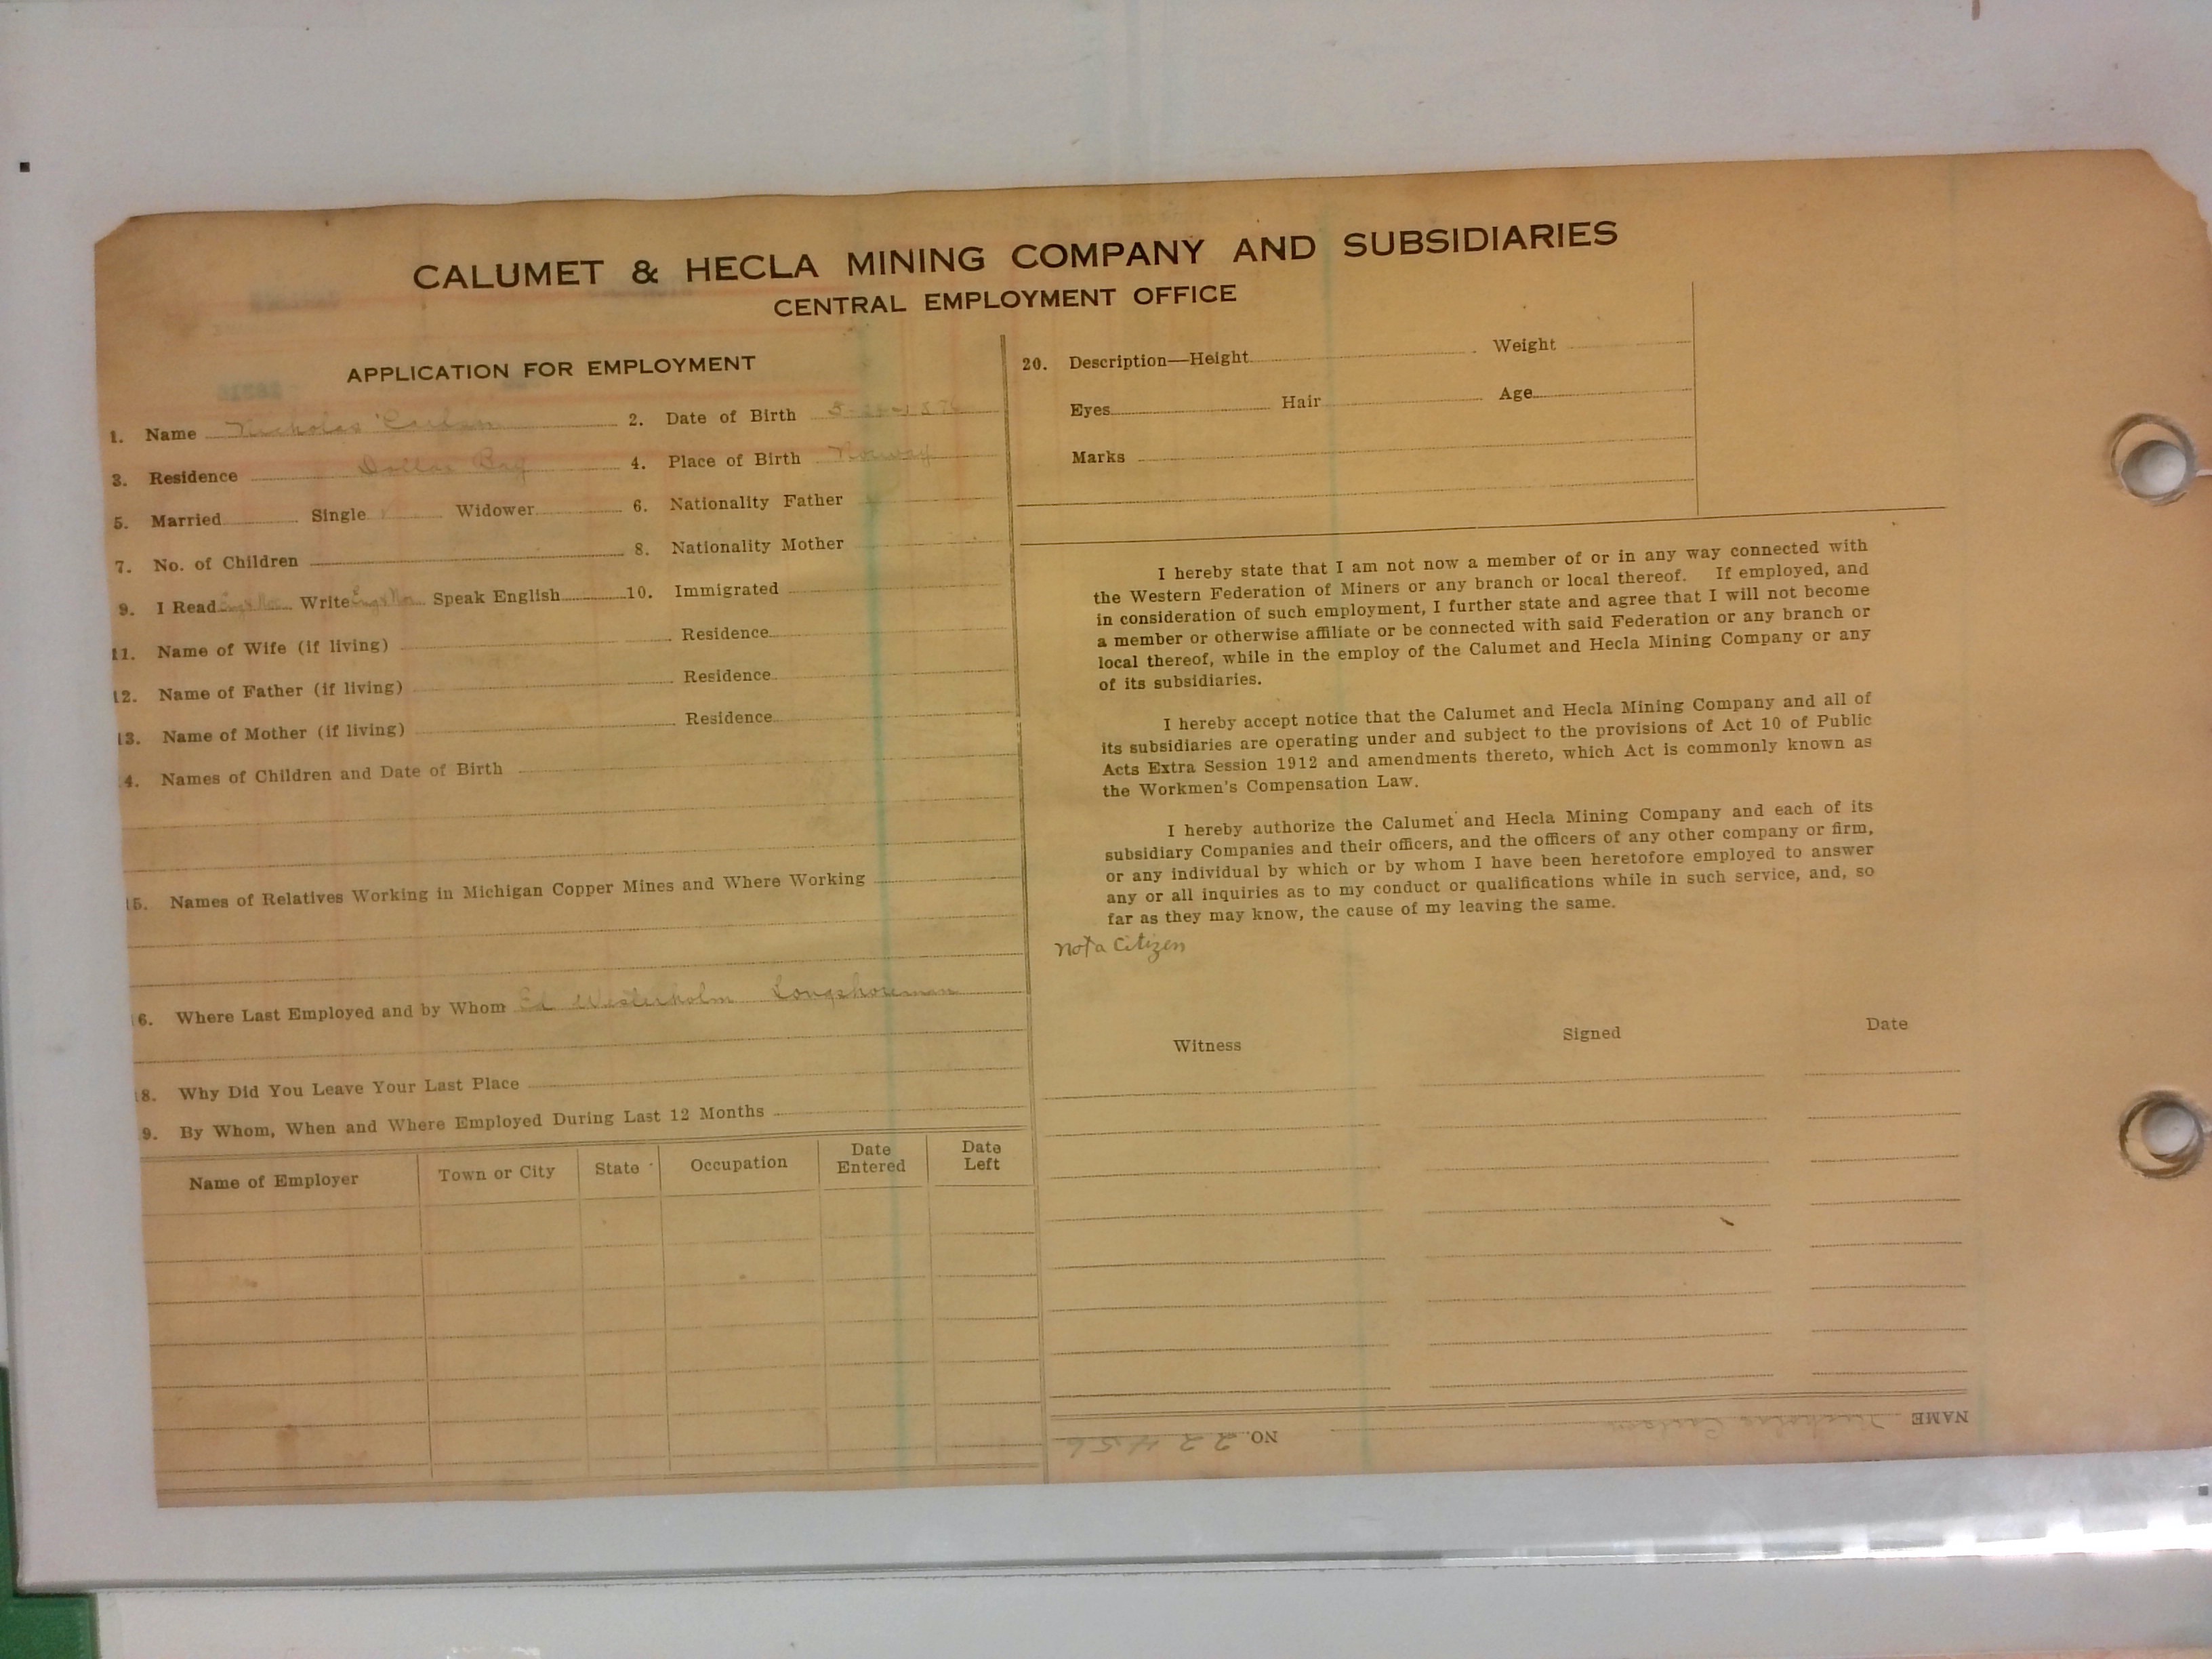 CALUMET & HECLA MINING COMPANY AND SUBSIDIARIES
CENTRAL EMPLOYMENT OFFICE
APPLICATION FOR EMPLOYMENT
1. Name Nicholas Carlson 2. Date of Birth
3. Residence Dollar Bay 4. Place of Birth Norway
5. Married Single Widower 6. Nationality Father
7. No. of Children 8. Nationality Mother
9. I Read Write Speak English 10. Immigrated
11. Name of Wife (if living) Residence
12. Name of Father (if living) Residence
13. Name of Mother (if living) Residence
4. Names of Children and Date of Birth
15. Names of Relatives Working in Michigan Copper Mines and Where Working
16. Where Last Employed and by Whom Ed Westerholm Longshoreman
18. Why Did You Leave Your Last Place
9. By Whom, When and Where Employed During Last 12 Months
Name of Employer Town or City State Occupation Date Entered Date Left
20. Description—Height Weight
Eyes Hair Age
Marks
I hereby state that I am not now a member of or in any way connected with
the Western Federation of Miners or any branch or local thereof. If employed, and
in consideration of such employment, I further state and agree that I will not become
a member or otherwise affiliate or be connected with said Federation or any branch or
local thereof, while in the employ of the Calumet and Hecla Mining Company or any
of its subsidiaries.
I hereby accept notice that the Calumet and Hecla Mining Company and all of
its subsidiaries are operating under and subject to the provisions of Act 10 of Public
Acts Extra Session 1912 and amendments thereto, which Act is commonly known as
the Workmen's Compensation Law.
I hereby authorize the Calumet and Hecla Mining Company and each of its
subsidiary Companies and their officers, and the officers of any other company or firm,
or any individual by which or by whom I have been heretofore employed to answer
any or all inquiries as to my conduct or qualifications while in such service, and, so
far as they may know, the cause of my leaving the same.
Not a Citizen
Witness Signed Date
NAME Nicholas Carlson NO. 22456